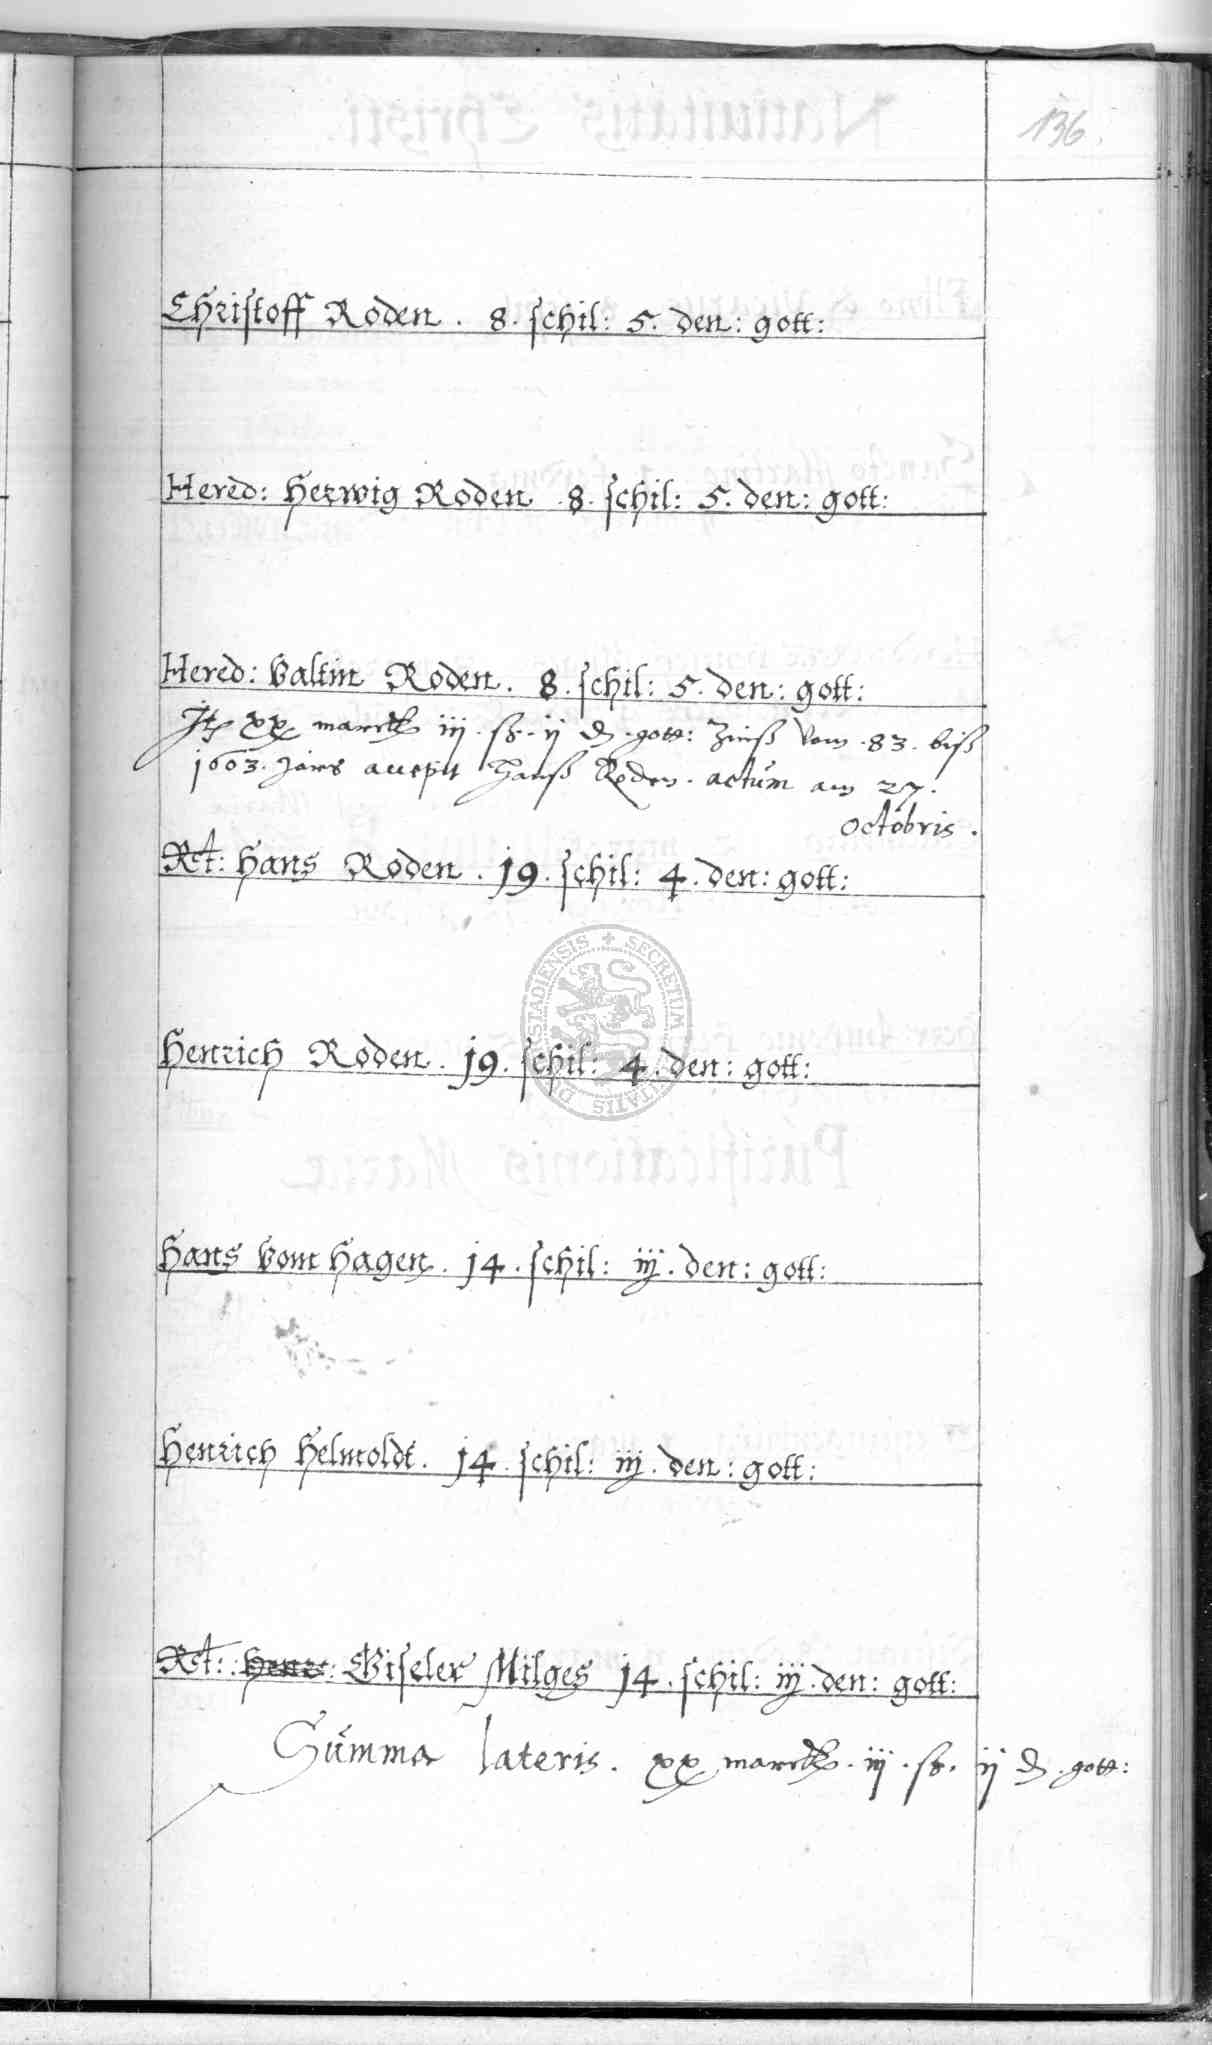 136.
Christoff Roden . 8. schil: 5. den: gott:
Hered: Herwig Roden . 8. schil: 5. den: gott:
Hered: Valtin Roden . 8. schil: 5. den: gott:
xx marck iij . ß . ij d . gott: Zinß vom . 83 . biß
1603. jars accepit Hanß Roden . actum am 27.
octobris .
Rt: Hans Roden . 19. schil: 4. den: gott:
Henrich Roden . 19. schil: 4. den: gott:
Hans vom Hagen . 14. schil: iij. den: gott:
Henrich Helmoldt . 14. schil: iij. den: gott:
Rt: Giseler Milges 14. schil: iij. den: gott:
Summa lateris . xx marck . iij . ß . ij d . gott:
SECRETUM